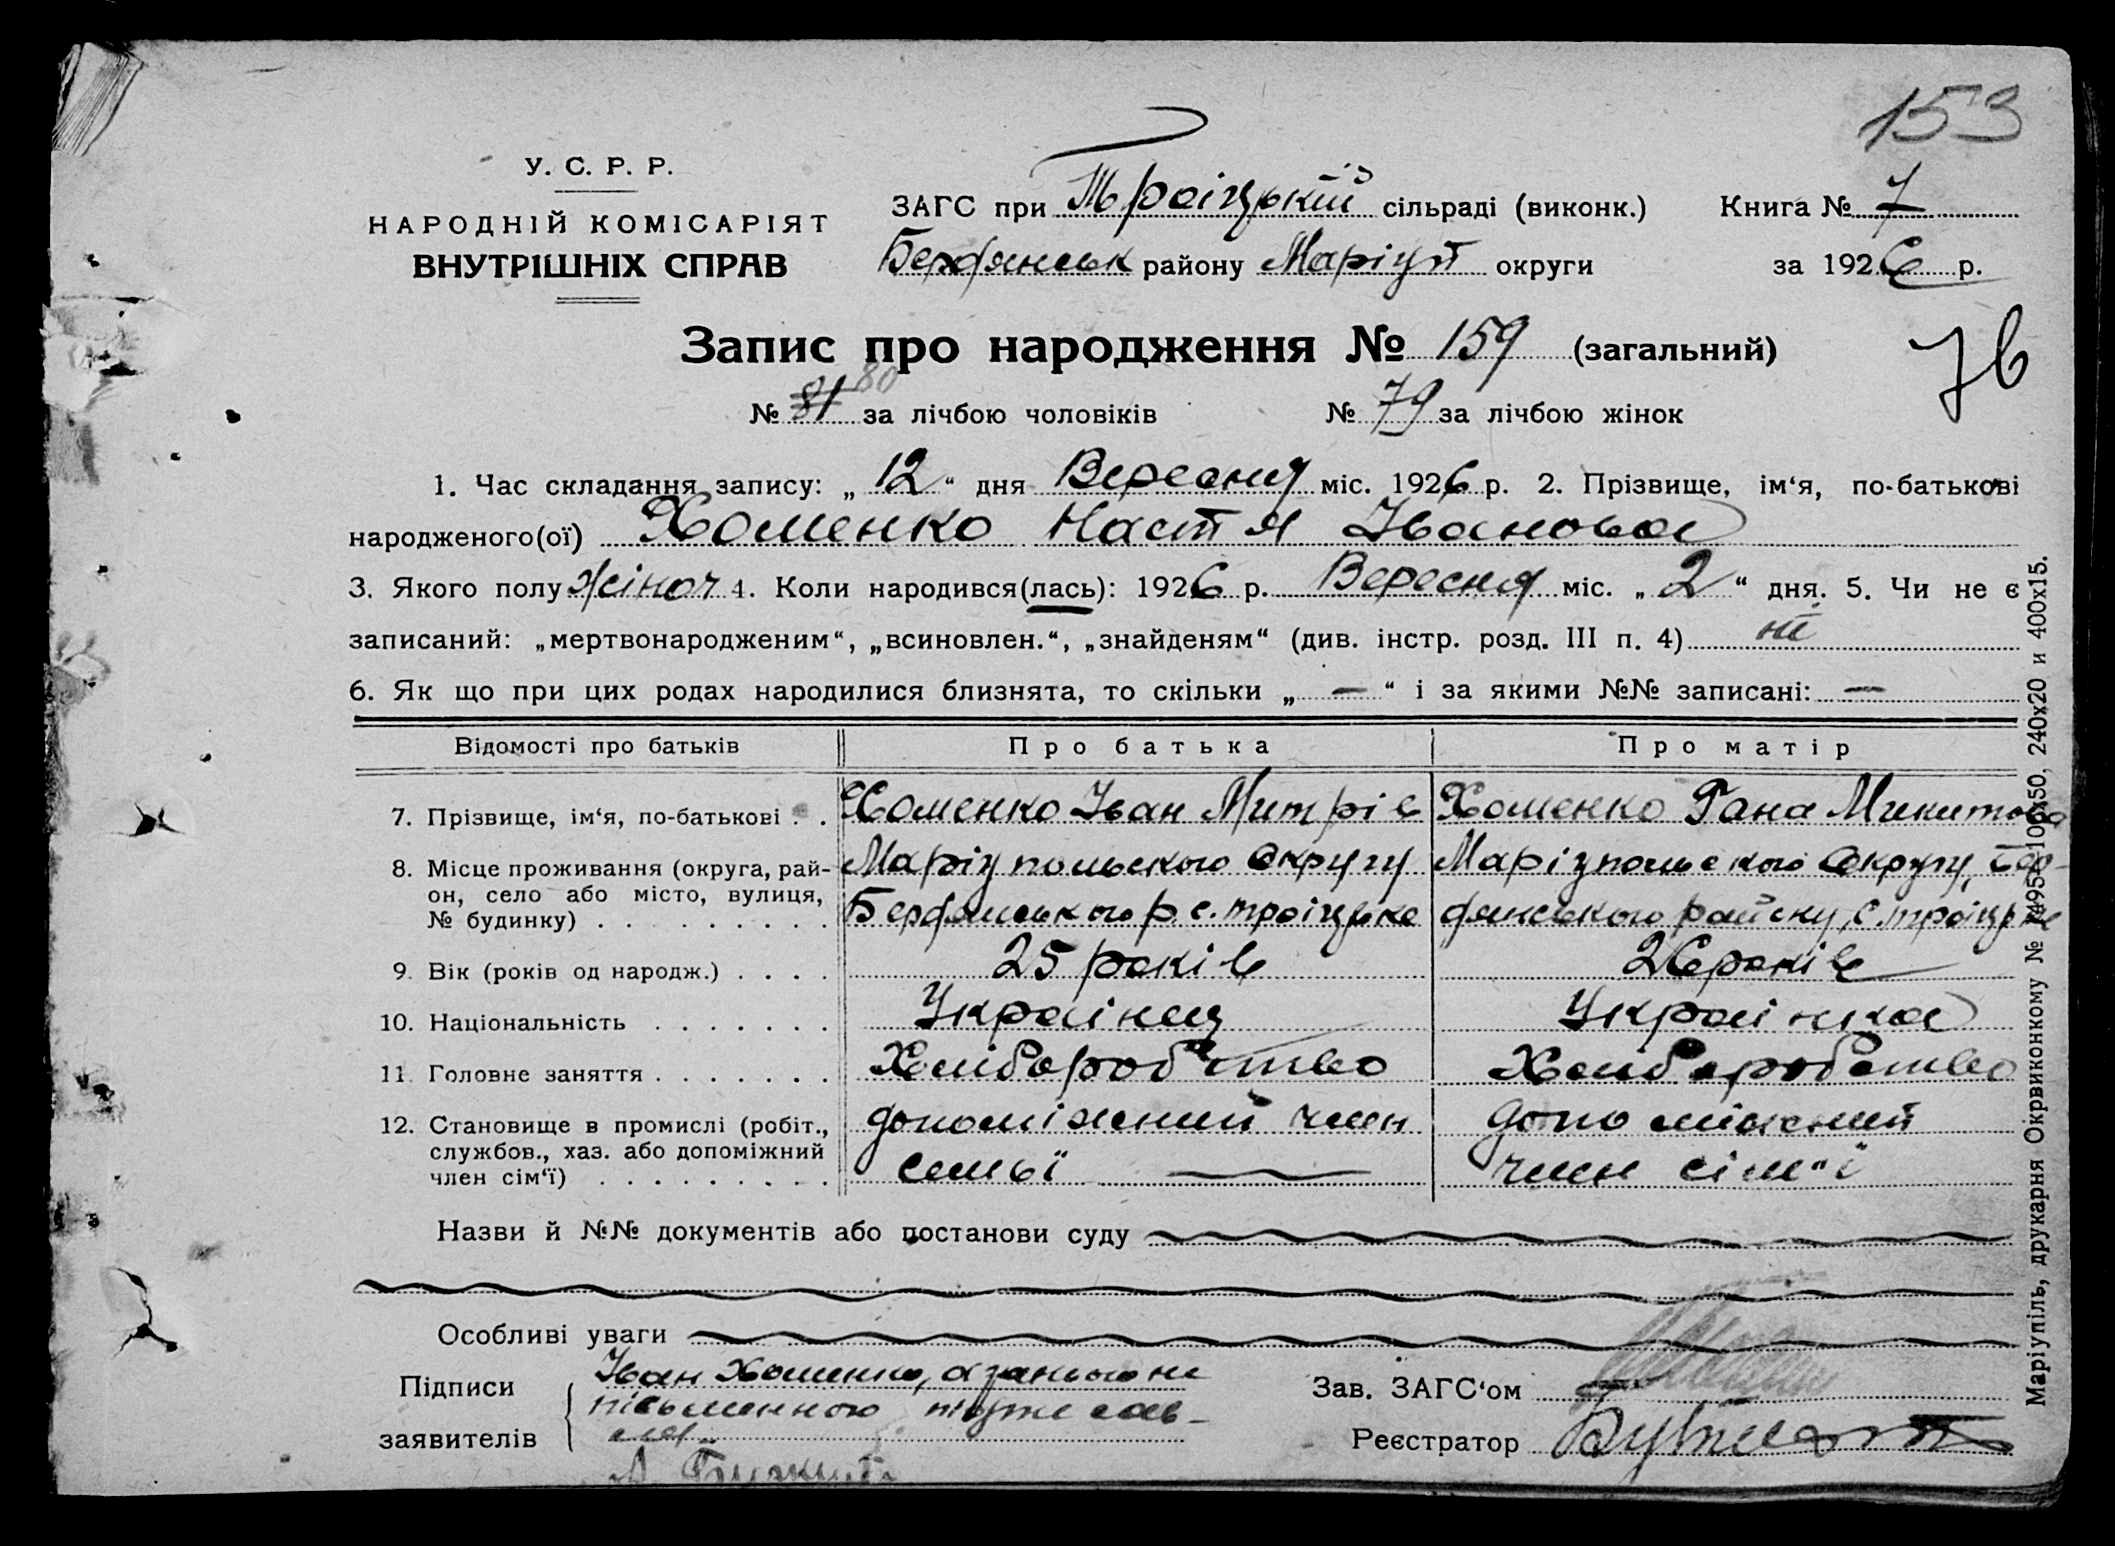 153
У. С. Р. Р.
НАРОДНІЙ КОМІСАРІЯТ
ВНУТРІШНІХ СПРАВ
ЗАГС при Троіцькій сільраді (виконк.) Книга № 7
Бердянськ району Маріуп округи за 1926 р.
Запис про народження № 159 (загальний)
76
№ 81 80 за лічбою чоловіків № 79 за лічбою жінок
1. Час складання запису: „ 12 “ дня Вересня міс. 1926 р. 2. Прізвище, ім‘я, по-батькові
народженого(ої) Хоменко Настя Іванова
3. Якого полу жіноч 4. Коли народився(лась): 1926 р. Вересня міс. „ 2 “ дня. 5. Чи не є
записаний: „мертвонародженим“, „всиновлен.“, „знайденям“ (див. інстр. розд. III п. 4) ні
6. Як що при цих родах народилися близнята, то скільки „ — “ і за якими №№ записані: —
Відомості про батьків Про батька Про матір
7. Прізвище, ім‘я, по-батькові . . Хоменко Іван Митрів Хоменко Гана Микитова
8. Місце проживання (округа, рай- Маріупольского Округу Маріупольского Округу, Бер-
он, село або місто, вулиця,
№ будинку) . . . . . . . . . Бердянського р. с. Троіцьке дянського району, с. Троіцьке
9. Вік (років од народж.) . . . . 25 років 26 років
10. Національність . . . . . . . Українец Українка
11. Головне заняття . . . . . . . Хліборобство Хліборобство
12. Становище в промислі (робіт., допоміжний член допоміжний
службов., хаз. або допоміжний
член сім‘ї) . . . . . . . . . семьї член сім"ї
Назви й №№ документів або постанови суду
Особливі уваги
Підписи Іван Хоменко, а за нього не
письменного
заявителів
Зав. ЗАГС‘ом
Реєстратор
Маріупіль, друкарня Окрвиконкому № 7495—100х50, 240х20 и 400х15.